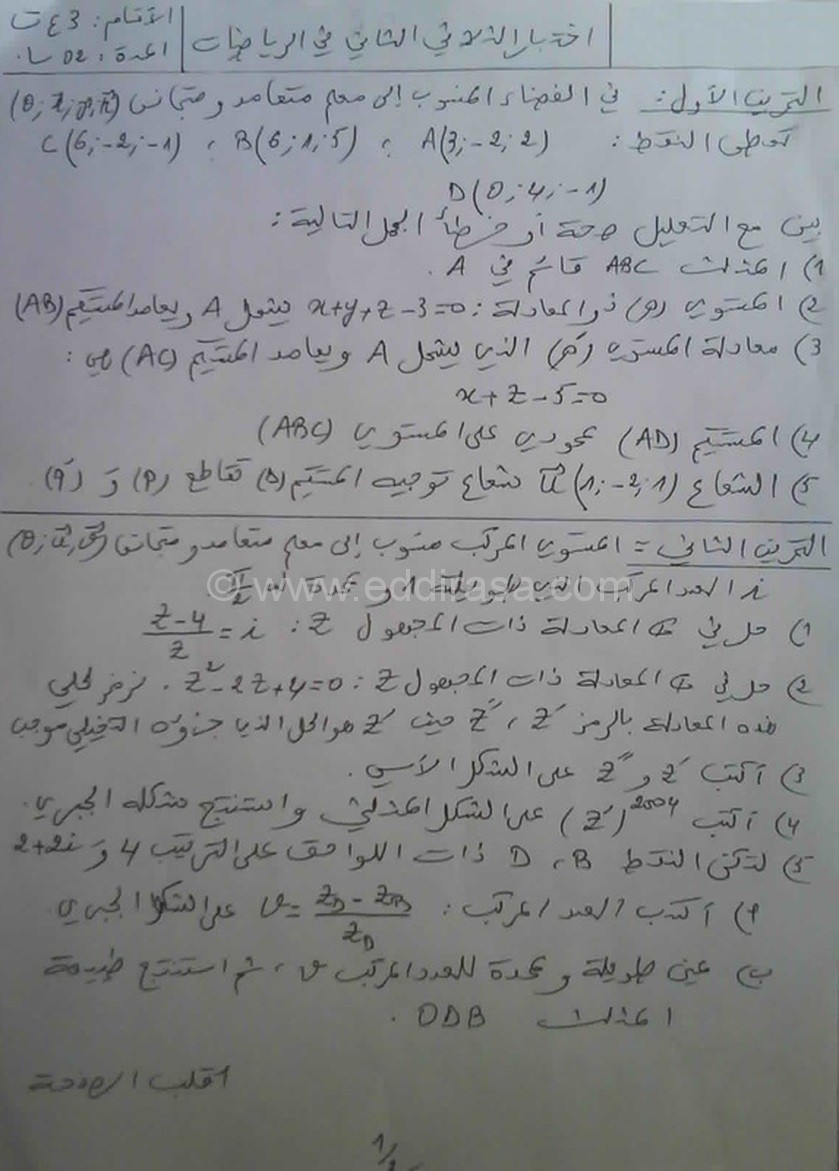 اختبار الثلاثي الثاني في الرياضيات
الأقسام: 3 ع ت
المدة: 02 سا.
التمرين الأول: في الفضاء المنسوب إلى معلم متعامد و متجانس
نعطي النقط: A(3;-2;2) ، B(6;1;5) ، C(6;-2;-1)
D(0;4;-1)
بين مع التعليل صحة أو خطأ الجمل التالية:
1) المثلث ABC قائم في A.
2) المستوي (P) ذو المعادلة: x+y+z-3=0 يشمل A ويعامد المستقيم (AB)
3) معادلة المستوي (P') الذي يشمل A ويعامد المستقيم (AC) هي:
x+z-5=0
4) المستقيم (AD) عمودي على المستوي (ABC)
5) الشعاع u(1;-2;1) شعاع توجيه المستقيم (Δ) تقاطع (P) و (P').
التمرين الثاني = المستوي المركب منسوب إلى معلم متعامد و متجانس
i العدد المركب الذي طويلته 1 و عمدة له π/2
1) حل في ℂ المعادلة ذات المجهول z: (z-4)/z = i
2) حل في ℂ المعادلة ذات المجهول z: z²-2z+4=0. نرمز لحلي
هذه المعادلة بالرمز z' ، z'' حيث z' هو الحل الذي جزؤه التخيلي موجب
3) أكتب z' و z'' على الشكل الأسي.
4) أكتب (z')^2004 على الشكل المثلثي واستنتج شكله الجبري.
5) لتكن النقط B ، D ذات اللواحق على الترتيب 4 و 2+2i
أ) أكتب العدد المركب: = (z_D - z_B)/z_D على الشكل الجبري.
ب) عين طويلة و عمدة للعدد المركب ، ثم استنتج طبيعة
المثلث ODB.
اقلب الصفحة
1/2
© www.eddirasa.com